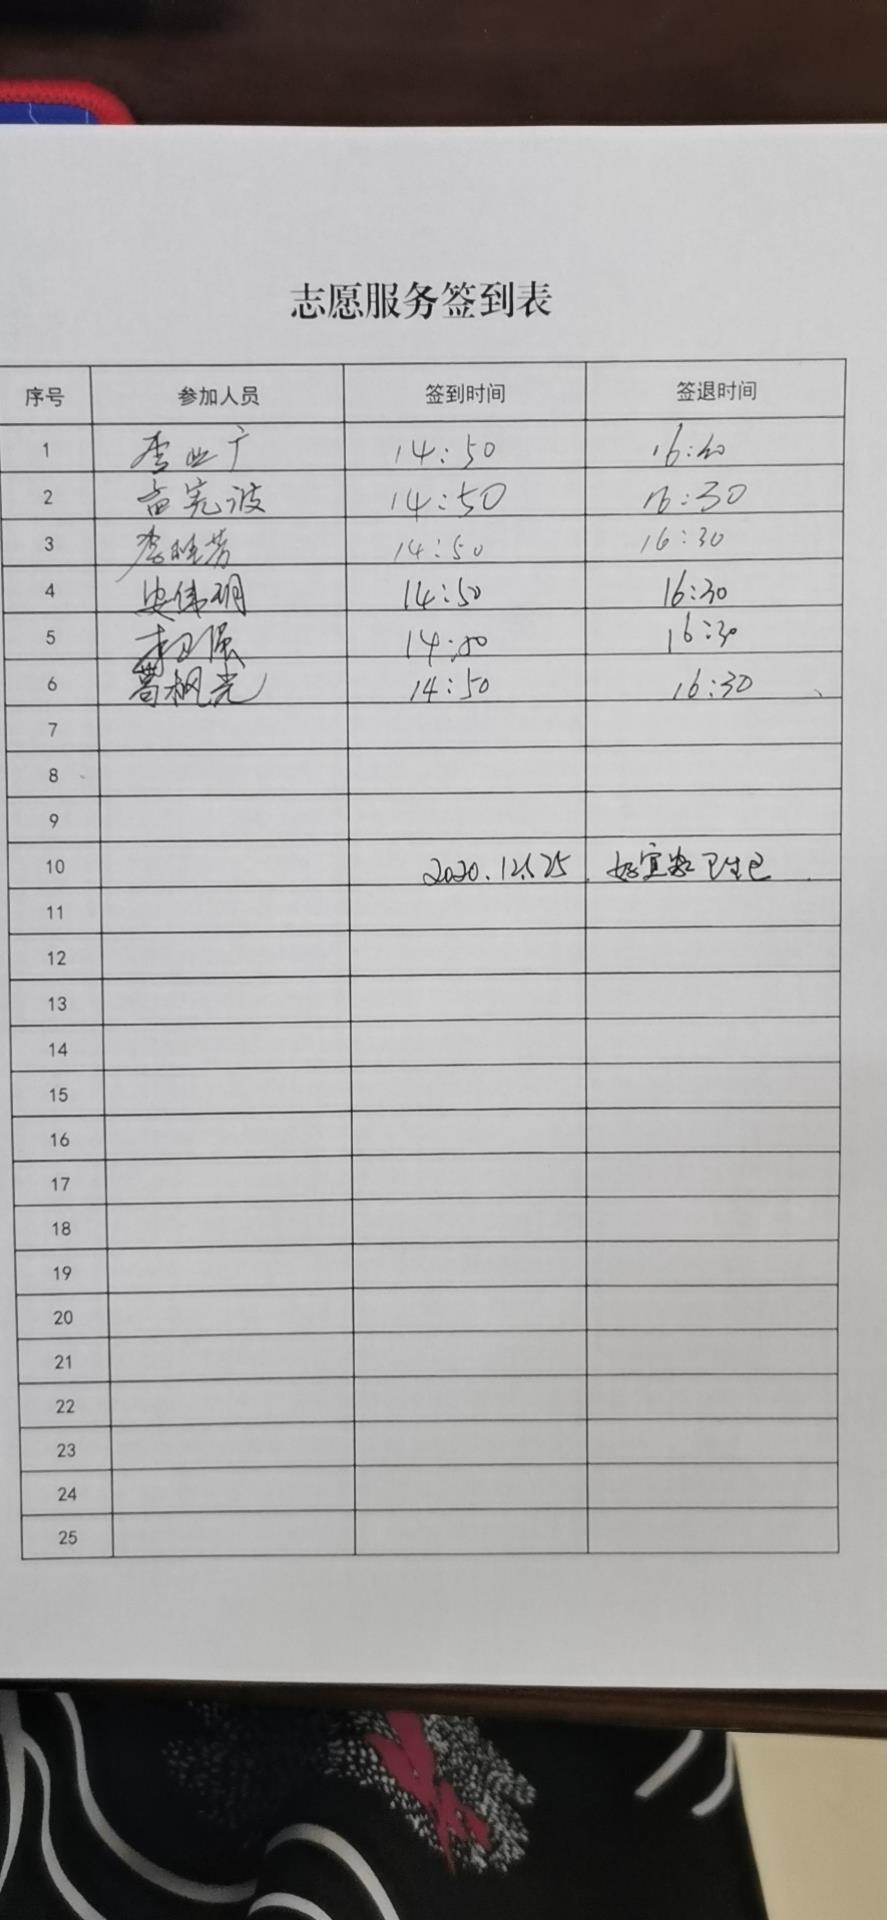 志愿服务签到表
序号 参加人员 签到时间 签退时间
1 李业广 14:50
2 苗宪波 14:50 16:30
3 14:50 16:30
4 安伟玥 14:50 16:30
5 16:30
6 葛枫光 14:50 16:30
7
8
9
10 2020.12.25 卫生已
11
12
13
14
15
16
17
18
19
20
21
22
23
24
25